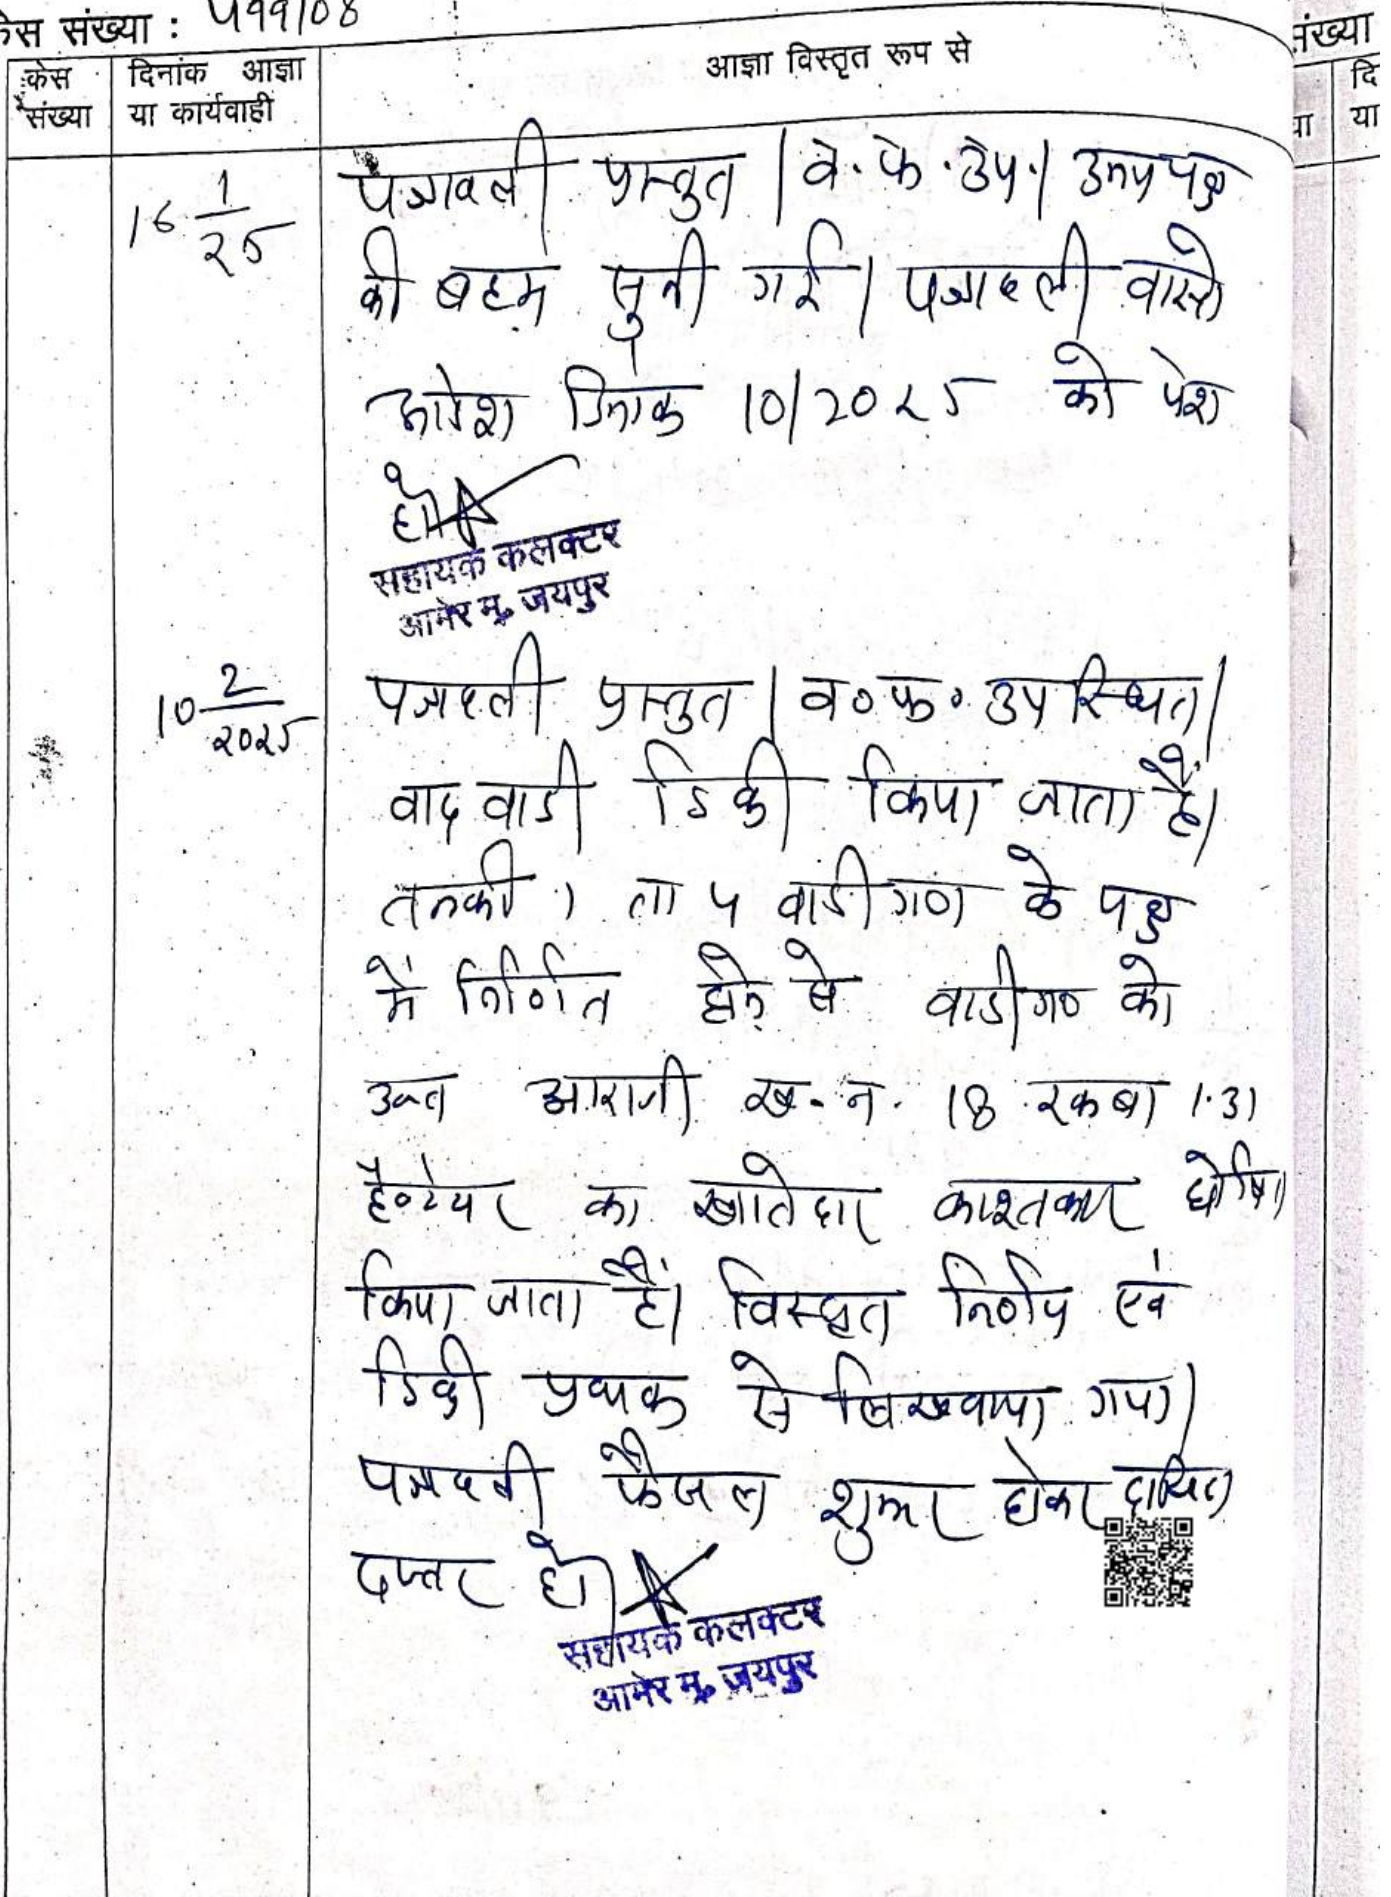 केस संख्या : 499/08
केस संख्या
दिनांक आज्ञा या कार्यवाही
आज्ञा विस्तृत रूप से
16 1/25
पत्रावली प्रस्तुत। व. फ. उप.। उभयपक्ष
की बहस सुनी गई। पत्रावली वास्ते
आदेश दिनांक 10/2025 को पेश
हो।
सहायक कलक्टर
आमेर मु. जयपुर
10 2/2025
पत्रावली प्रस्तुत। व० फ० उपस्थित।
वाद वादी डिक्री किया जाता है।
तनकी 1 ता 4 वादीगण के पक्ष
में निर्णित होने से वादीगण को
उक्त आराजी ख. न. 18 रकबा 1.31
हैक्टेयर का खातेदार काश्तकार घोषित
किया जाता है। विस्तृत निर्णय एवं
डिक्री पृथक से लिखवाया गया।
पत्रावली फैसल शुमार होकर दाखिल
दफ्तर हो।
सहायक कलक्टर
आमेर मु. जयपुर
संख्या
दि
या